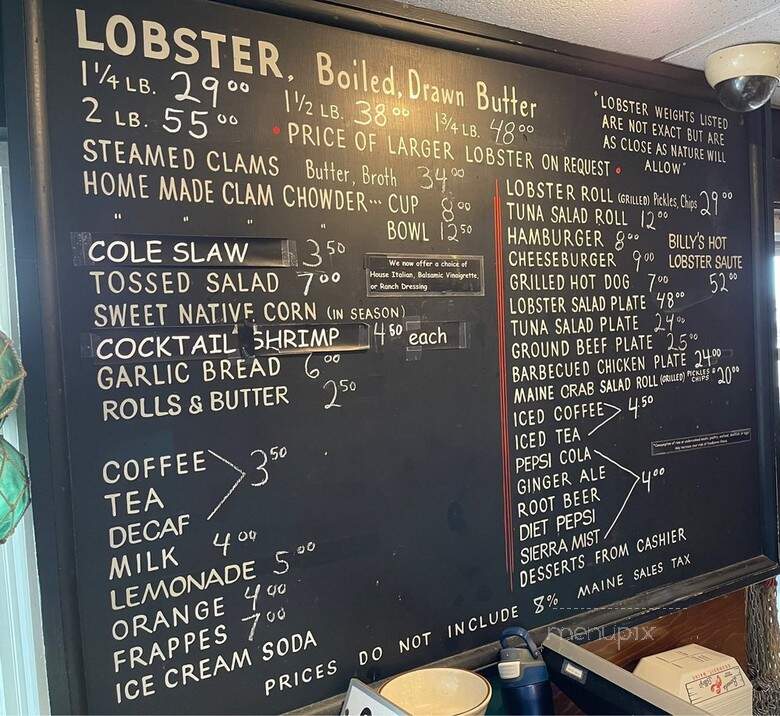 LOBSTER, Boiled, Drawn Butter
1 1/4 LB. 29⁰⁰ 1 1/2 LB. 38⁰⁰ 1 3/4 LB. 48⁰⁰
2 LB. 55⁰⁰ • PRICE OF LARGER LOBSTER ON REQUEST •
"LOBSTER WEIGHTS LISTED
ARE NOT EXACT BUT ARE
AS CLOSE AS NATURE WILL
ALLOW"
STEAMED CLAMS Butter, Broth 34⁰⁰
HOME MADE CLAM CHOWDER... CUP 8⁰⁰
" " " " BOWL 12⁵⁰
COLE SLAW 3⁵⁰
We now offer a choice of
House Italian, Balsamic Vinaigrette,
or Ranch Dressing
TOSSED SALAD 7⁰⁰
SWEET NATIVE CORN (IN SEASON)
COCKTAIL SHRIMP 4⁵⁰ each
GARLIC BREAD 6⁰⁰
ROLLS & BUTTER 2⁵⁰
COFFEE
TEA 3⁵⁰
DECAF
MILK 4⁰⁰
LEMONADE 5⁰⁰
ORANGE 4⁰⁰
FRAPPES 7⁰⁰
ICE CREAM SODA
LOBSTER ROLL (GRILLED) Pickles, Chips 29⁰⁰
TUNA SALAD ROLL 12⁰⁰
HAMBURGER 8⁰⁰
CHEESEBURGER 9⁰⁰
BILLY'S HOT
LOBSTER SAUTE
52⁰⁰
GRILLED HOT DOG 7⁰⁰
LOBSTER SALAD PLATE 48⁰⁰
TUNA SALAD PLATE 24⁰⁰
GROUND BEEF PLATE 25⁰⁰
BARBECUED CHICKEN PLATE 24⁰⁰
MAINE CRAB SALAD ROLL (GRILLED) PICKLES & CHIPS 20⁰⁰
ICED COFFEE 4⁵⁰
ICED TEA
PEPSI COLA
GINGER ALE
ROOT BEER 4⁰⁰
DIET PEPSI
SIERRA MIST
DESSERTS FROM CASHIER
PRICES DO NOT INCLUDE 8% MAINE SALES TAX
menupix